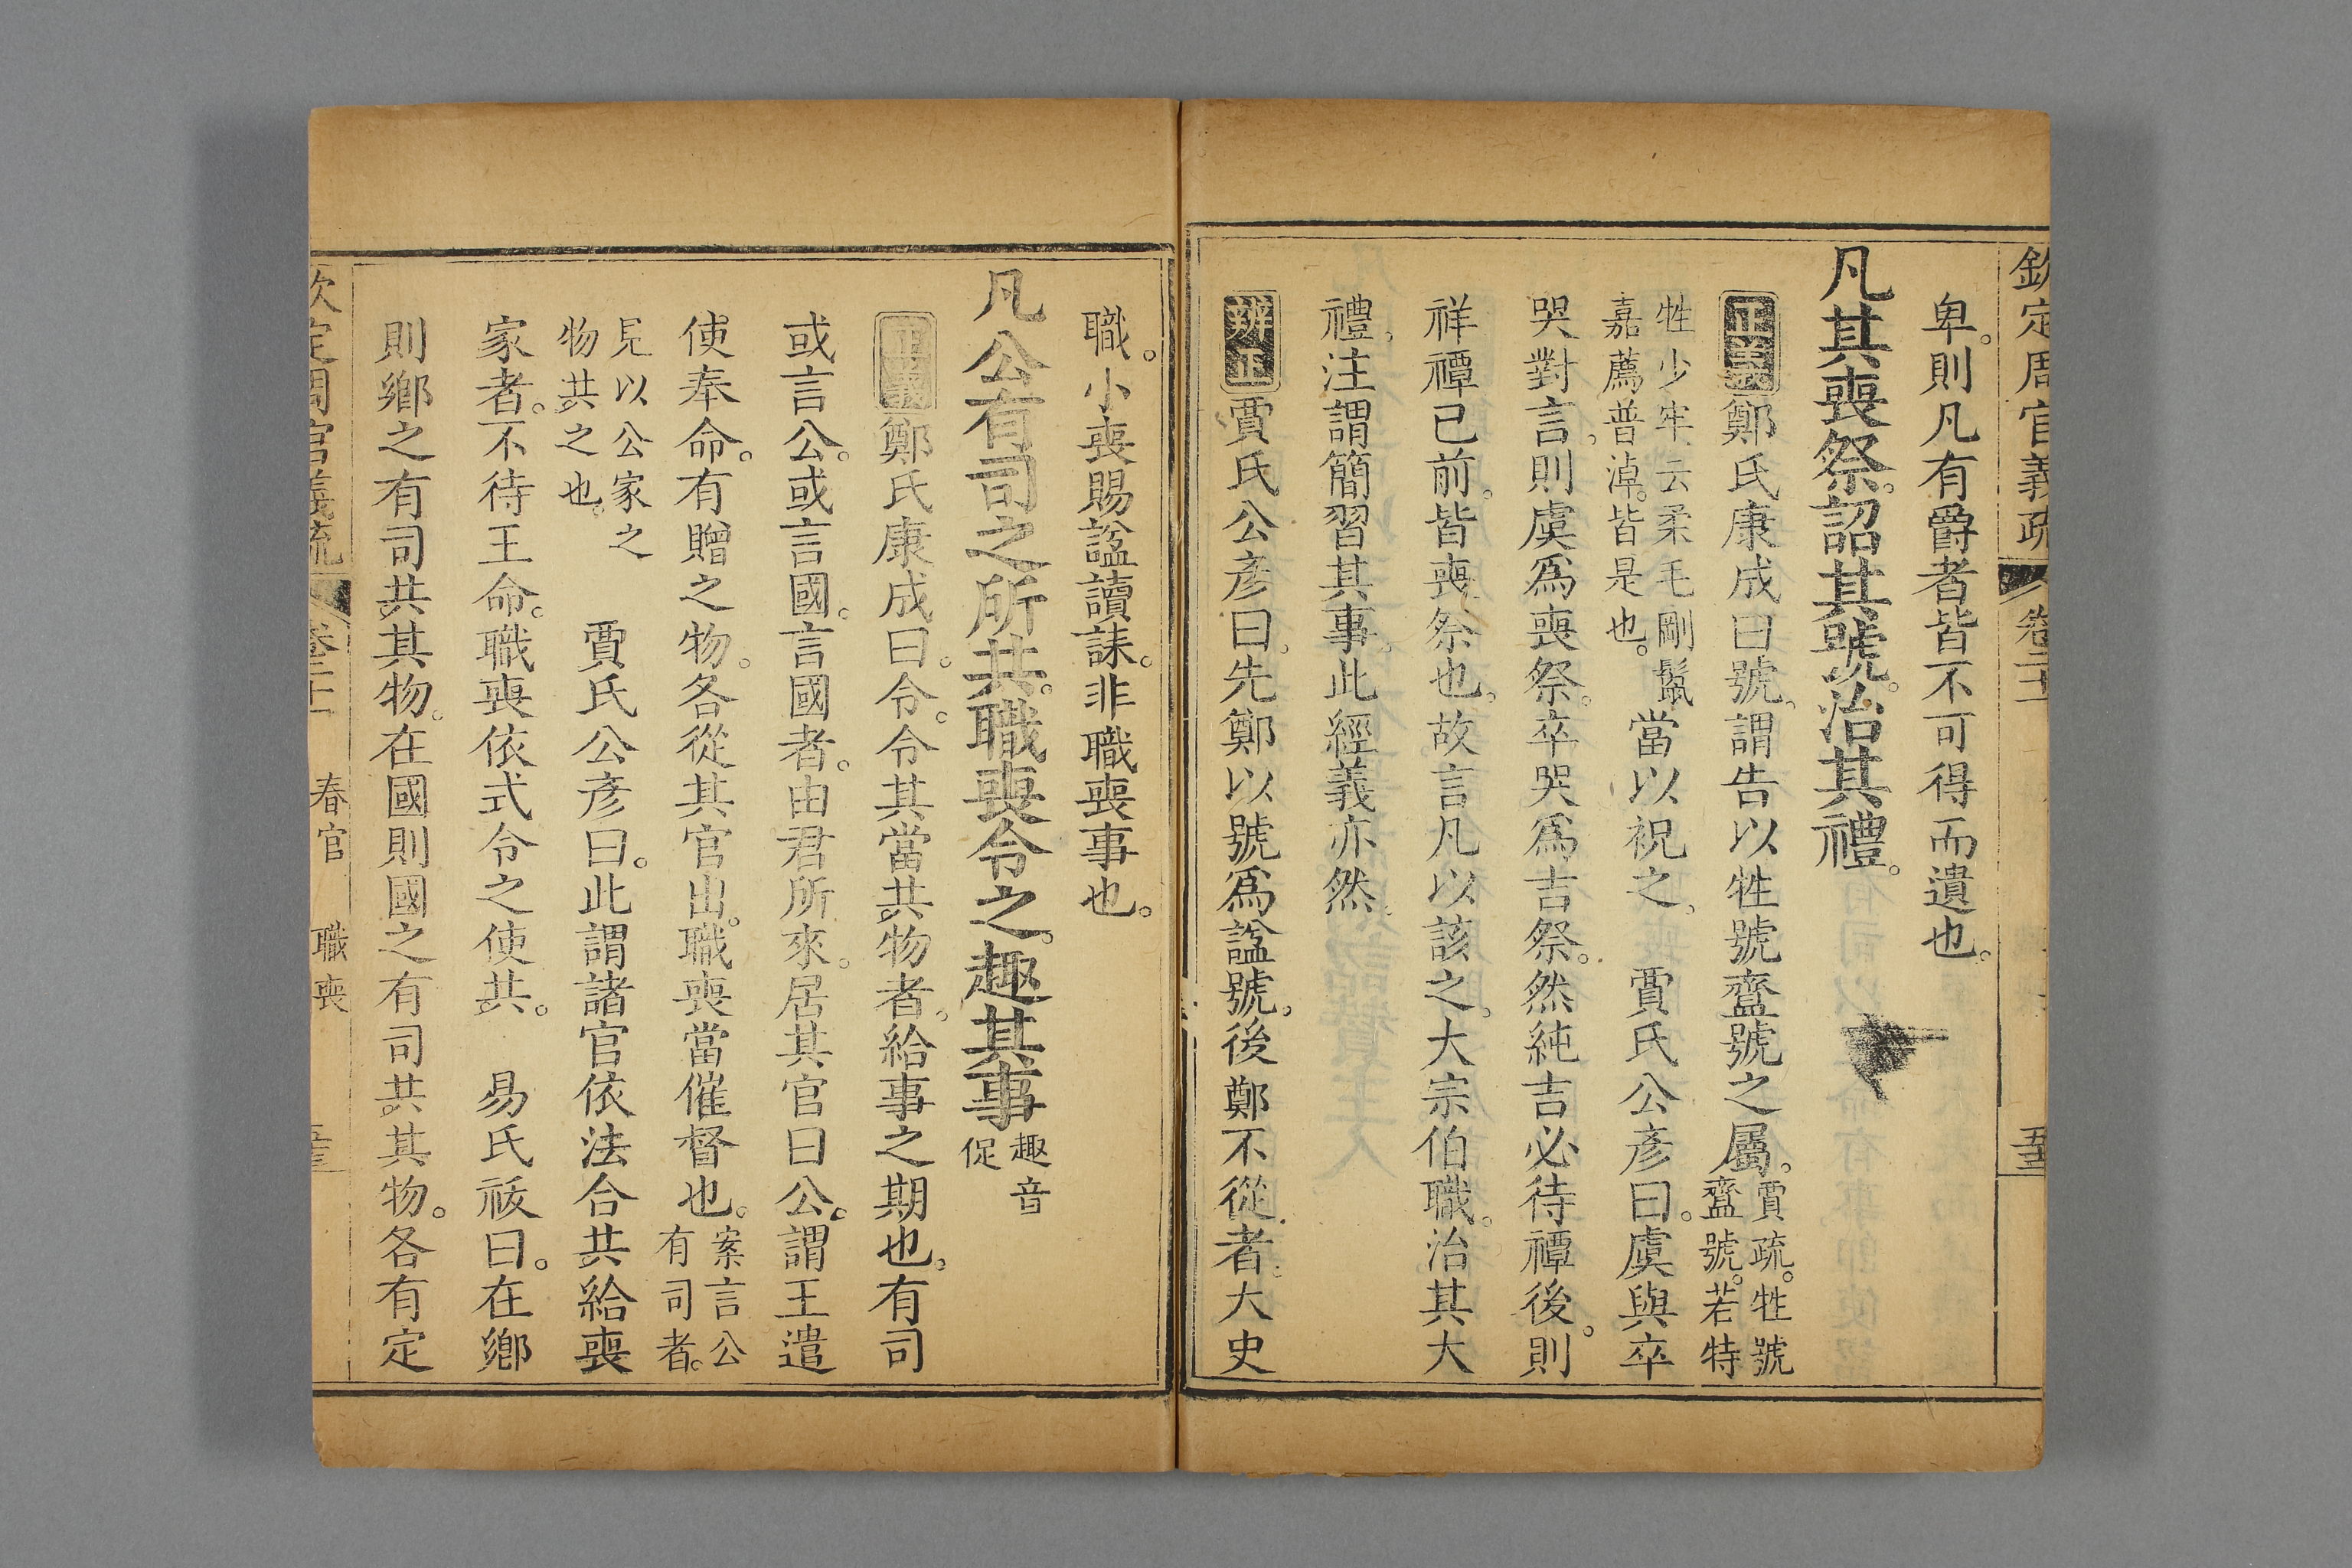 欽定周官義疏 卷二十二
五十三
卑。則凡有爵者皆不可得而遺也。
凡其喪祭。詔其號。治其禮。
正義 鄭氏康成曰號。謂告以牲號齍號之屬。賈疏。牲號齍號。若特
牲少牢云柔毛剛鬛嘉薦普淖。皆是也。當以祝之。 賈氏公彥曰。虞與卒
哭對言。則虞爲喪祭。卒哭爲吉祭。然純吉必待禫後。則
祥禫已前。皆喪祭也。故言凡以該之。大宗伯職。治其大
禮。注謂簡習其事。此經義亦然。
辨正 賈氏公彥曰。先鄭以號爲諡號。後鄭不從者。大史
職。小喪賜諡讀誄。非職喪事也。
凡公有司之所共。職喪令之。趣其事 趣音促
正義 鄭氏康成曰。令。令其當共物者。給事之期也。有司
或言公。或言國。言國者。由君所來。居其官曰公。謂王遣
使奉命。有贈之物。各從其官出。職喪當催督也。案言公有司者。
見以公家之物共之也。 賈氏公彥曰。此謂諸官依法合共給喪
家者。不待王命。職喪依式令之使共。 易氏祓曰。在鄉
則鄉之有司共其物。在國則國之有司共其物。各有定
欽定周官義疏 卷二十二 春官 職喪